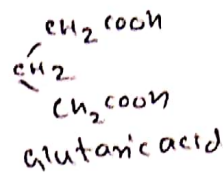 CH2COOH
CH2
CH2COOH
Glutaric acid